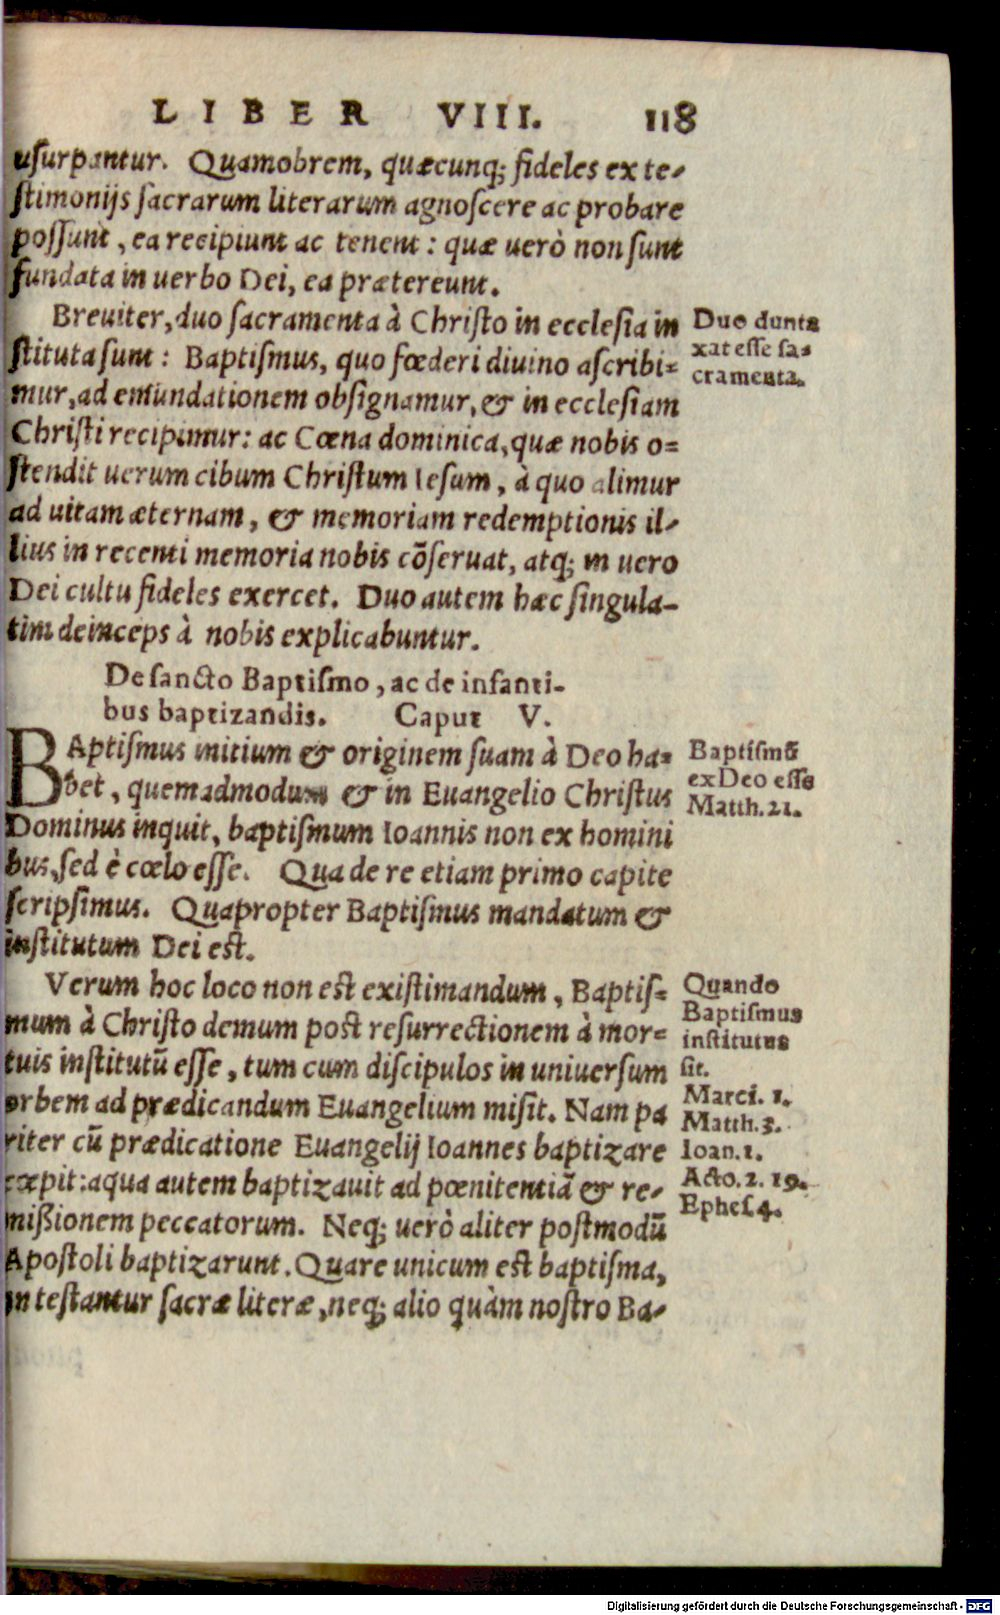 LIBER VIII. 118
uſurpantur. Quamobrem, quæcunq; fideles ex te-
ſtimonijs ſacrarum literarum agnoſcere ac probare
poſſunt, ea recipiunt ac tenent: quæ uerò non ſunt
fundata in uerbo Dei, ea prætereunt.
Breuiter, duo ſacramenta à Chriſto in eccleſia in
ſtituta ſunt: Baptiſmus, quo fœderi diuino aſcribi-
mur, ad emundationem obſignamur, & in eccleſiam
Chriſti recipimur: ac Cœna dominica, quæ nobis o-
ſtendit uerum cibum Chriſtum Ieſum, à quo alimur
ad uitam æternam, & memoriam redemptionis il-
lius in recenti memoria nobis cõſeruat, atq; in uero
Dei cultu fideles exercet. Duo autem hæc ſingula-
tim deinceps à nobis explicabuntur.
Duo dunta
xat eſſe ſa-
cramenta.
De ſancto Baptiſmo, ac de infanti-
bus baptizandis. Caput V.
BAptiſmus initium & originem ſuam à Deo ha-
bet, quemadmodum & in Euangelio Chriſtus
Dominus inquit, baptiſmum Ioannis non ex homini
bus, ſed è cœlo eſſe. Qua de re etiam primo capite
ſcripſimus. Quapropter Baptiſmus mandatum &
inſtitutum Dei eſt.
Baptiſmũ
ex Deo eſſe
Matth. 21.
Verum hoc loco non eſt exiſtimandum, Baptiſ-
mum à Chriſto demum poſt reſurrectionem à mor-
tuis inſtitutũ eſſe, tum cum diſcipulos in uniuerſum
orbem ad prædicandum Euangelium miſit. Nam pa
riter cũ prædicatione Euangelij Ioannes baptizare
cœpit: aqua autem baptizauit ad pœnitentiã & re-
mißionem peccatorum. Neq; uerò aliter poſtmodũ
Apoſtoli baptizarunt. Quare unicum eſt baptiſma,
ut teſtantur ſacræ literæ, neq; alio quàm noſtro Ba-
Quando
Baptiſmus
inſtitutus
ſit.
Marci. 1.
Matth. 3.
Ioan. 1.
Acto. 2. 19.
Epheſ. 4.
Digitalisierung gefördert durch die Deutsche Forschungsgemeinschaft - DFG